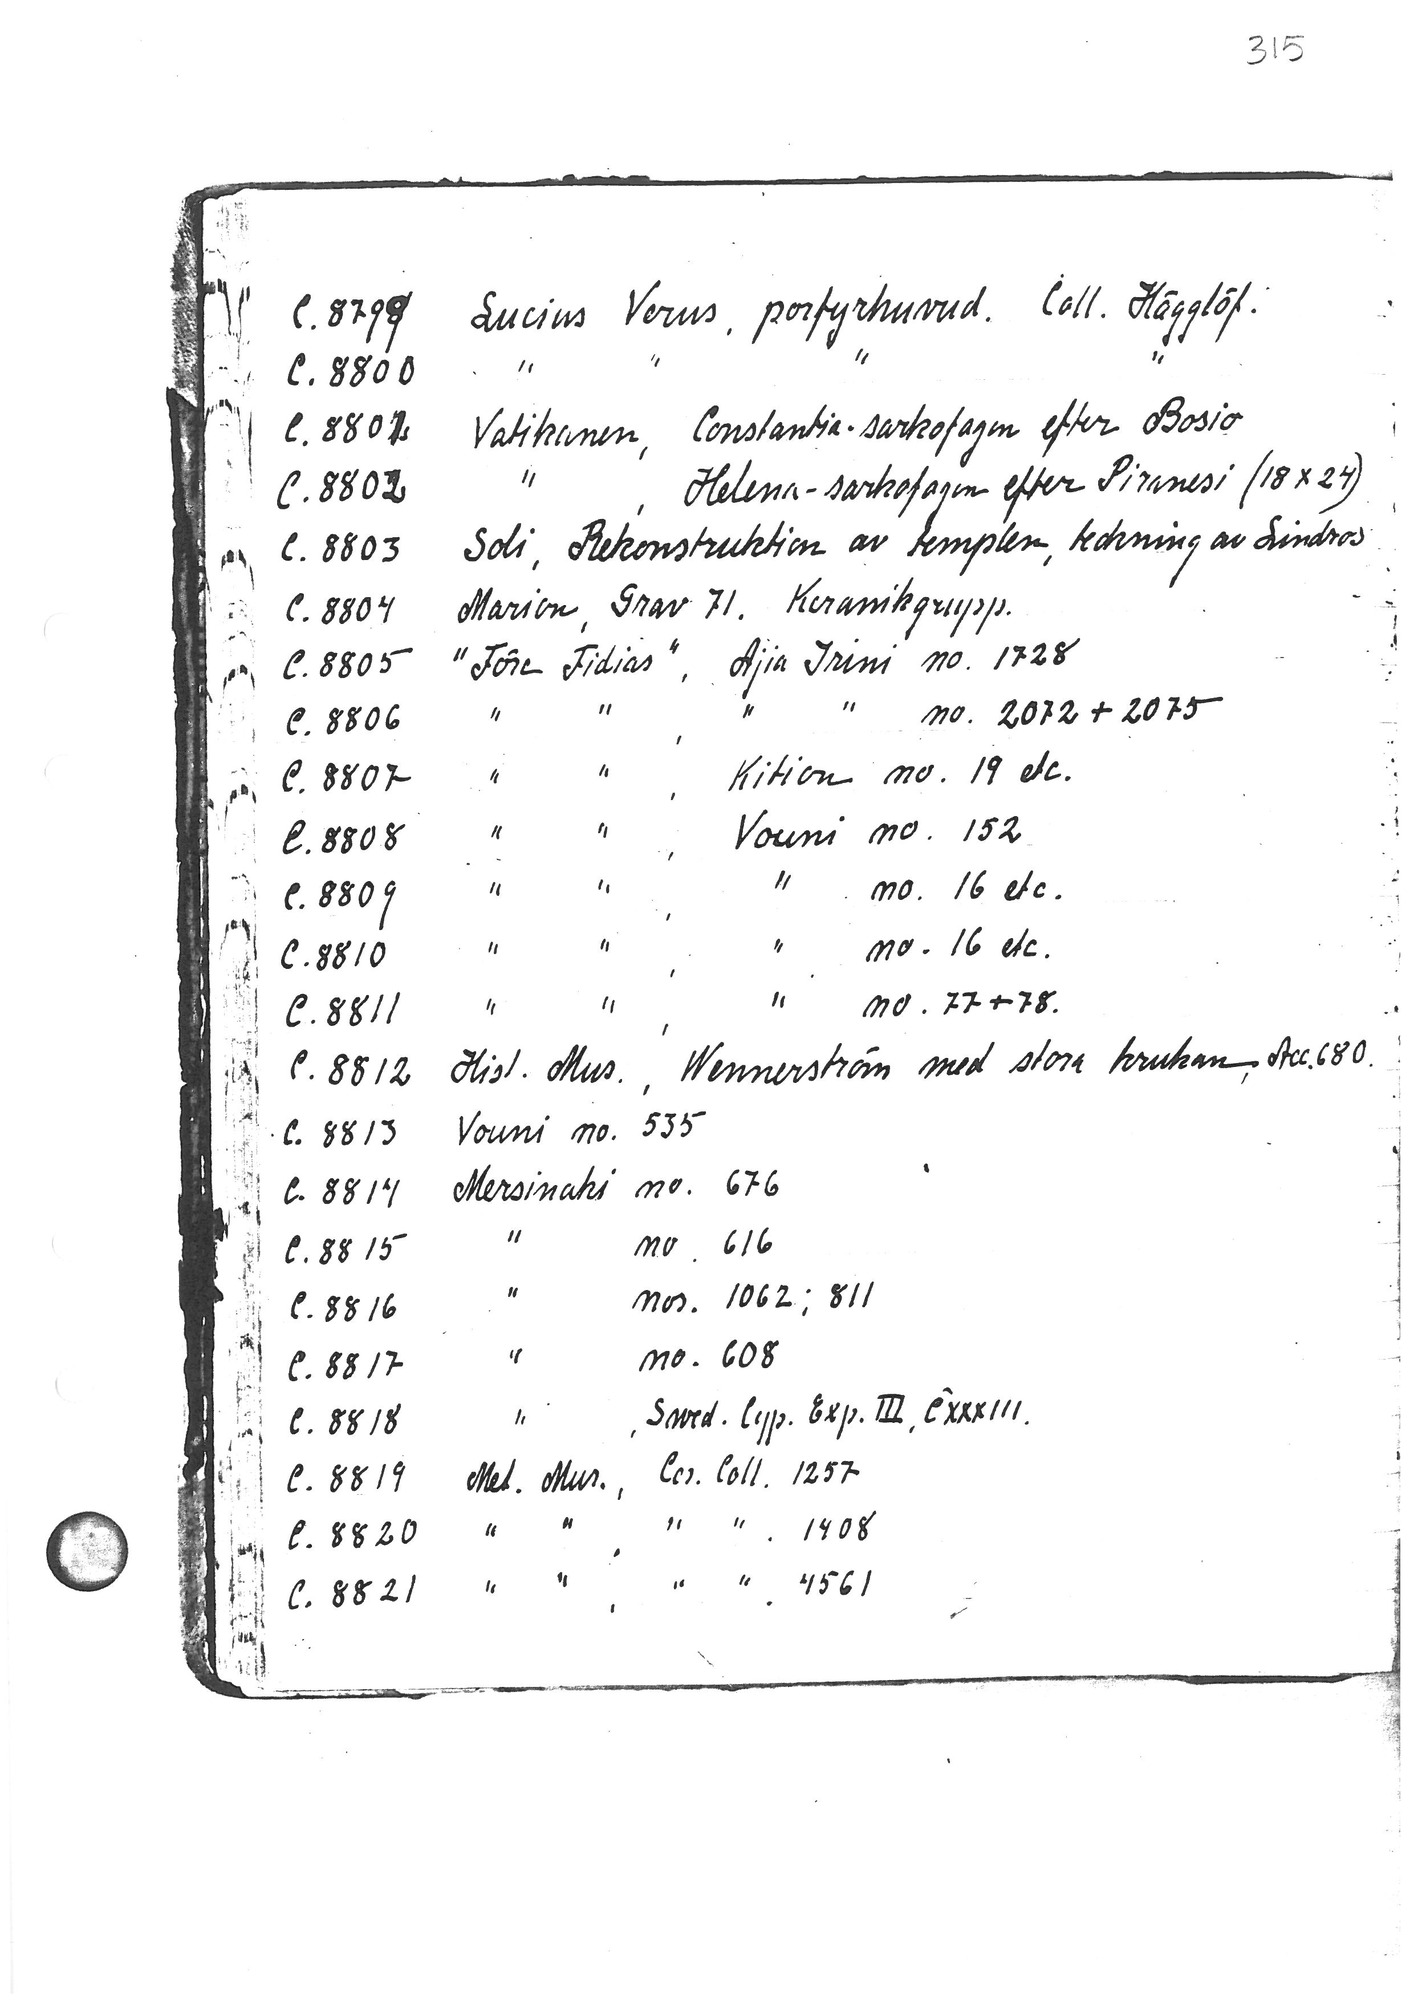 315
C. 8799 Lucius Verus, porfyrhuvud. Coll. Hägglöf.
C. 8800 " " " "
C. 8801 Vatikanen, Constantia-sarkofagen efter Bosio
C. 8802 " , Helena-sarkofagen efter Piranesi (18 x 24)
C. 8803 Soli, Rekonstruktion av templen, teckning av Lindros
C. 8804 Marion, Grav 71. Keramikgrupp.
C. 8805 "Före Fidias", Ajia Irini no. 1728
C. 8806 " " , " " no. 2072 + 2075
C. 8807 " " , Kition no. 19 etc.
C. 8808 " " , Vouni no. 152
C. 8809 " " , " no. 16 etc.
C. 8810 " " , " no. 16 etc.
C. 8811 " " , " no. 77 + 78.
C. 8812 Hist. Mus., Wennerström med stora krukan, Acc. 680.
C. 8813 Vouni no. 535
C. 8814 Mersinaki no. 676
C. 8815 " no. 616
C. 8816 " nos. 1062; 811
C. 8817 " no. 608
C. 8818 " , Swed. Cyp. Exp. III, CXXXIII.
C. 8819 Met. Mus., Ces. Coll. 1257
C. 8820 " " , " " . 1408
C. 8821 " " , " " . 4561